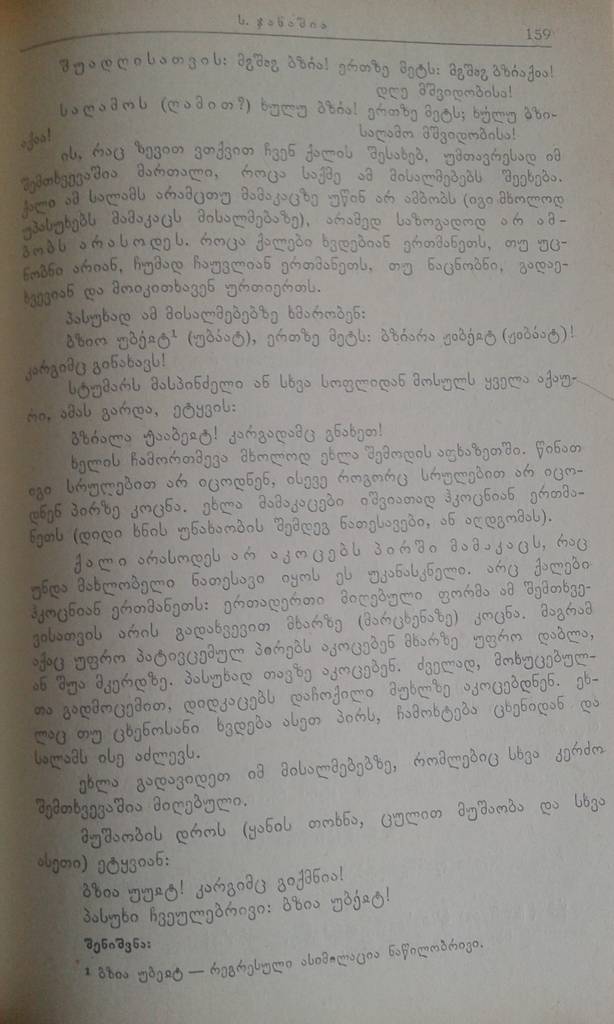 ს. ჯანაშია
159
შუადღისათვის: მგშჲგ ბზია! ერთზე მეტს: მგშჲგ ბზიაქია!
დღე მშვიდობისა!
საღამოს (ღამით?) ხულუ ბზია! ერთზე მეტს; ხულუ ბზი-
აქია!
საღამო მშვიდობისა!
ის, რაც ზევით ვთქვით ჩვენ ქალის შესახებ, უმთავრესად იმ
შემთხვევაშია მართალი, როცა საქმე ამ მისალმებებს შეეხება.
ქალი ამ სალამს არამცთუ მამაკაცზე უწინ არ ამბობს (იგი მხოლოდ
უპასუხებს მამაკაცს მისალმებაზე), არამედ საზოგადოდ არ ამ-
ბობს არასოდეს. როცა ქალები ხვდებიან ერთმანეთს, თუ უც-
ნობნი არიან, ჩუმად ჩაუვლიან ერთმანეთს, თუ ნაცნობნი, გადაე-
ხვევიან და მოიკითხავენ ურთიერთს.
პასუხად ამ მისალმებებზე ხმარობენ:
ბზიო ¹ ერთზე მეტს: ბზიარა
კარგიმც გინახავს!
სტუმარს მასპინძელი ან სხვა სოფლიდან მოსულს ყველა აქაუ-
რი, ამას გარდა, ეტყვის:
ბზიალა კარგადამც გნახეთ!
ხელის ჩამორთმევა მხოლოდ ეხლა შემოდის აფხაზეთში. წინათ
იგი სრულებით არ იცოდნენ, ისევე როგორც სრულებით არ იცო-
დნენ პირზე კოცნა. ეხლა მამაკაცები იშვიათად ჰკოცნიან ერთმა-
ნეთს (დიდი ხნის უნახაობის შემდეგ ნათესავები, ან აღდგომას).
ქალი არასოდეს არ აკოცებს პირში მამაკაცს, რაც
უნდა მახლობელი ნათესავი იყოს ეს უკანასკნელი. არც ქალები
ჰკოცნიან ერთმანეთს: ერთადერთი მიღებული ფორმა ამ შემთხვე-
ვისათვის არის გადახვევით მხარზე (მარცხენაზე) კოცნა. მაგრამ
აქაც უფრო პატივცემულ პირებს აკოცებენ მხარზე უფრო დაბლა,
ან შუა მკერდზე. პასუხად თავზე აკოცებენ. ძველად, მოხუცებულ-
თა გადმოცემით, დიდკაცებს დაჩოქილი მუხლზე აკოცებდნენ. ეხ-
ლაც თუ ცხენოსანი ხვდება ასეთ პირს, ჩამოხტება ცხენიდან და
სალამს ისე აძლევს.
ეხლა გადავიდეთ იმ მისალმებებზე, რომლებიც სხვა კერძო
შემთხვევაშია მიღებული.
მუშაობის დროს (ყანის თოხნა, ცულით მუშაობა და სხვა
ასეთი) ეტყვიან:
ბზია კარგიმც გიქმნია!
პასუხი ჩვეულებრივი: ბზია
შენიშვნა:
¹ ბზია — რეგრესული ასიმილაცია ნაწილობრივი.